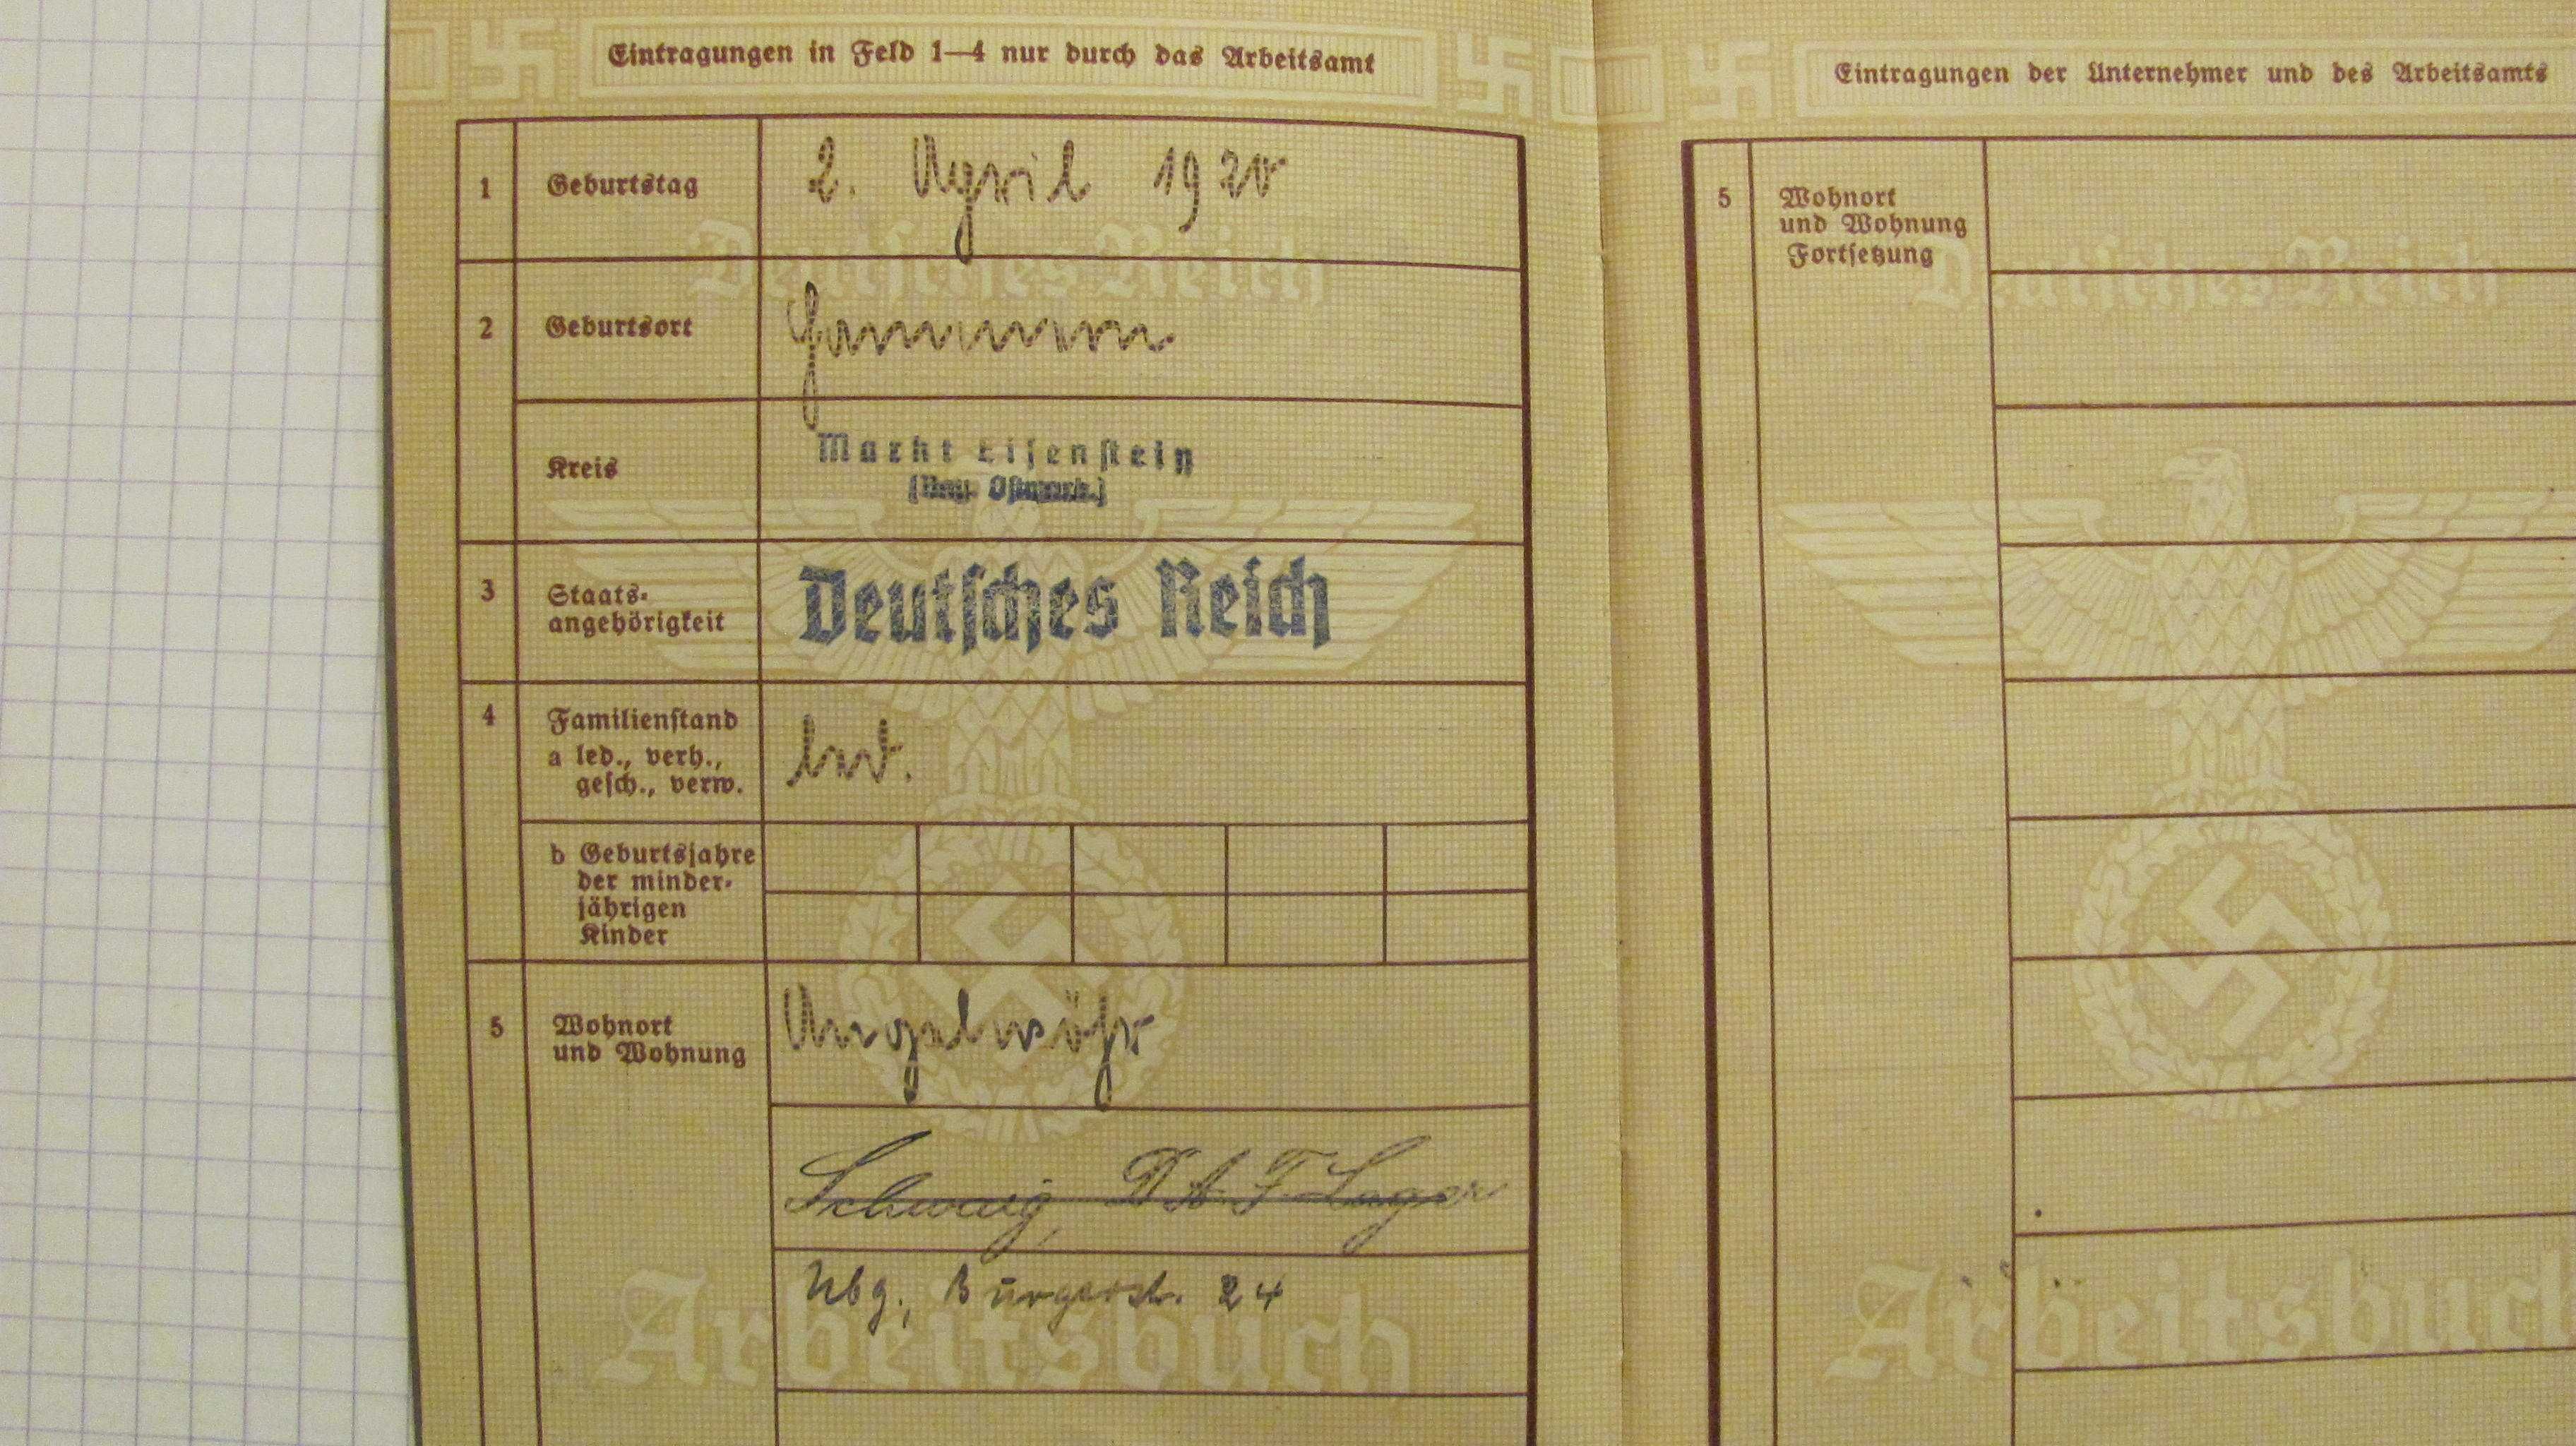 Eintragungen in Feld 1—4 nur durch das Arbeitsamt
1 Geburtstag 2. April 1920
Deutsches Reich
2 Geburtsort Hammern
Kreis Markt Eisenstein
(Bay. Ostmark.)
3 Staats-
angehörigkeit Deutsches Reich
4 Familienstand
a led., verh.,
gesch., verw. led.
b Geburtsjahre
der minder-
jährigen
Kinder
5 Wohnort
und Wohnung
Schwaig, DAF Lager
Nbg., Burgerstr. 24
Arbeitsbuch
Eintragungen der Unternehmer und des Arbeitsamts
5 Wohnort
und Wohnung
Fortsetzung
Deutsches Reich
Arbeitsbuch